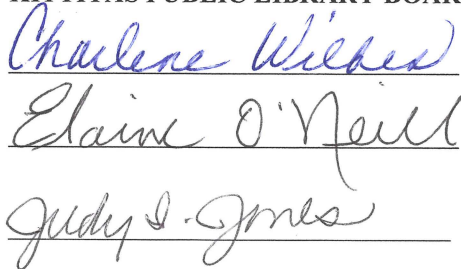 KITTITAS PUBLIC LIBRARY BOAR
Charlene Wilbes
Elaine O'Neill
Judy I. Jones